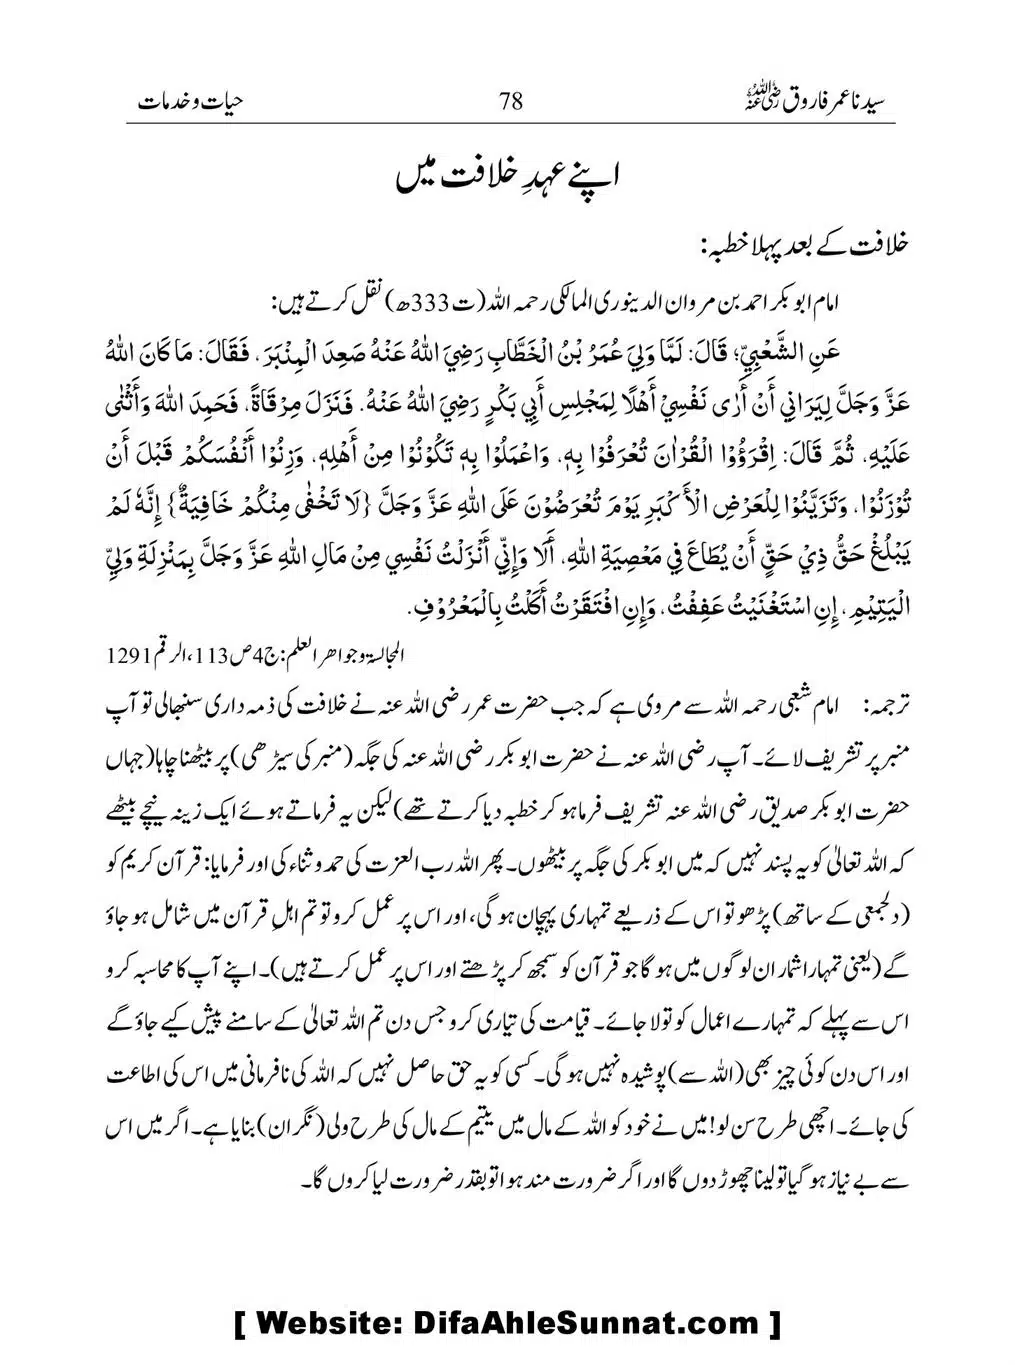 سیدنا عمر فاروق رضی اللہ عنہ 78 حیات و خدمات
اپنے عہدِ خلافت میں
خلافت کے بعد پہلا خطبہ:
امام ابو بکر احمد بن مروان الدینوری المالکی رحمہ اللہ (ت 333ھ) نقل کرتے ہیں:
عَنِ الشَّعْبِيِّ؛ قَالَ: لَمَّا وَلِيَ عُمَرُ بْنُ الْخَطَّابِ رَضِيَ اللهُ عَنْهُ صَعِدَ الْمِنْبَرَ، فَقَالَ: مَا كَانَ اللهُ
عَزَّ وَجَلَّ لِيَرَانِي أَنْ أَرٰى نَفْسِيْ أَهْلًا لِمَجْلِسِ أَبِي بَكْرٍ رَضِيَ اللهُ عَنْهُ. فَنَزَلَ مِرْقَاةً، فَحَمِدَ اللهَ وَأَثْنٰى
عَلَيْهِ، ثُمَّ قَالَ: اِقْرَؤُوْا الْقُرْاٰنَ تُعْرَفُوْا بِهٖ، وَاعْمَلُوْا بِهٖ تَكُوْنُوْا مِنْ أَهْلِهٖ، وَزِنُوْا أَنْفُسَكُمْ قَبْلَ أَنْ
تُوْزَنُوْا، وَتَزَيَّنُوْا لِلْعَرْضِ الْأَكْبَرِ يَوْمَ تُعْرَضُوْنَ عَلَى اللهِ عَزَّ وَجَلَّ {لَا تَخْفٰى مِنْكُمْ خَافِيَةٌ} إِنَّهٗ لَمْ
يَبْلُغْ حَقُّ ذِيْ حَقٍّ أَنْ يُطَاعَ فِي مَعْصِيَةِ اللهِ، أَلَا وَإِنِّي أَنْزَلْتُ نَفْسِي مِنْ مَالِ اللهِ عَزَّ وَجَلَّ بِمَنْزِلَةِ وَلِيِّ
الْيَتِيْمِ، إِنِ اسْتَغْنَيْتُ عَفِفْتُ، وَإِنِ افْتَقَرْتُ أَكَلْتُ بِالْمَعْرُوْفِ.
المجالسۃ وجواھر العلم: ج4 ص113، الرقم 1291
ترجمہ: امام شعبی رحمہ اللہ سے مروی ہے کہ جب حضرت عمر رضی اللہ عنہ نے خلافت کی ذمہ داری سنبھالی تو آپ
منبر پر تشریف لائے۔ آپ رضی اللہ عنہ نے حضرت ابو بکر رضی اللہ عنہ کی جگہ (منبر کی سیڑھی) پر بیٹھنا چاہا (جہاں
حضرت ابو بکر صدیق رضی اللہ عنہ تشریف فرما ہو کر خطبہ دیا کرتے تھے) لیکن یہ فرماتے ہوئے ایک زینہ نیچے بیٹھے
کہ اللہ تعالیٰ کو یہ پسند نہیں کہ میں ابو بکر کی جگہ پر بیٹھوں۔ پھر اللہ رب العزت کی حمد و ثناء کی اور فرمایا: قرآن کریم کو
(دلجمعی کے ساتھ) پڑھو تو اس کے ذریعے تمہاری پہچان ہو گی، اور اس پر عمل کرو تو تم اہلِ قرآن میں شامل ہو جاؤ
گے (یعنی تمہارا شمار ان لوگوں میں ہو گا جو قرآن کو سمجھ کر پڑھتے اور اس پر عمل کرتے ہیں)۔ اپنے آپ کا محاسبہ کرو
اس سے پہلے کہ تمہارے اعمال کو تولا جائے۔ قیامت کی تیاری کرو جس دن تم اللہ تعالیٰ کے سامنے پیش کیے جاؤ گے
اور اس دن کوئی چیز بھی (اللہ سے) پوشیدہ نہیں ہو گی۔ کسی کو یہ حق حاصل نہیں کہ اللہ کی نافرمانی میں اس کی اطاعت
کی جائے۔ اچھی طرح سن لو! میں نے خود کو اللہ کے مال میں یتیم کے مال کی طرح ولی (نگران) بنایا ہے۔ اگر میں اس
سے بے نیاز ہو گیا تو لینا چھوڑ دوں گا اور اگر ضرورت مند ہوا تو بقدر ضرورت لیا کروں گا۔
[ Website: DifaAhleSunnat.com ]